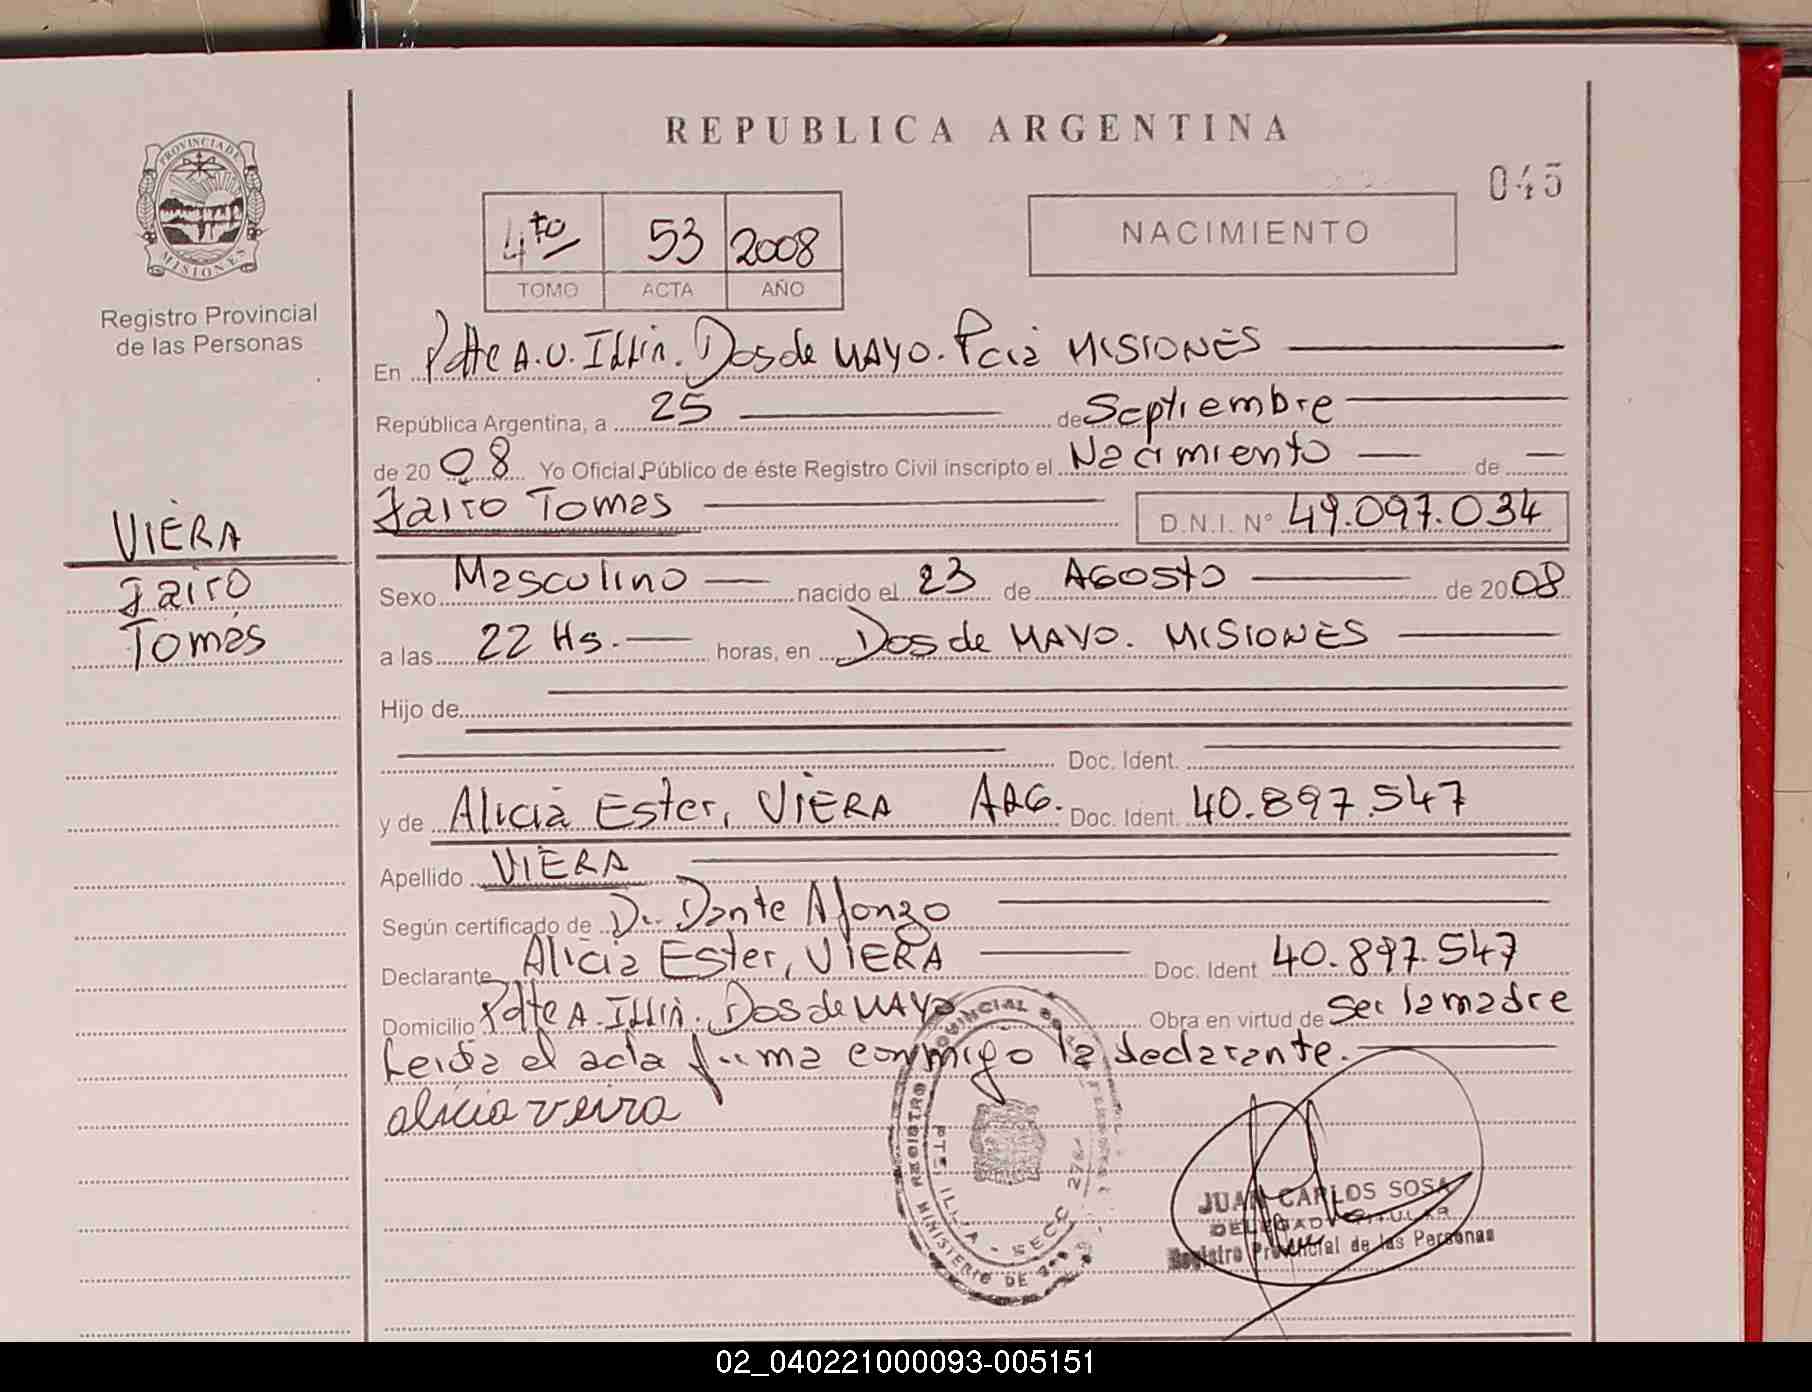 REPUBLICA ARGENTINA
045
PROVINCIA DE
MISIONES
Registro Provincial
de las Personas
4to 53 2008
TOMO ACTA AÑO
NACIMIENTO
En Pdte A.U. Illia. Dos de MAYO. Pcia MISIONES
República Argentina, a 25 de Septiembre
de 2008 Yo Oficial Público de éste Registro Civil inscripto el Nacimiento de
Jairo Tomas D.N.I. N° 49.097.034
VIERA
Jairo
Tomás
Sexo Masculino nacido el 23 de AGOSTO de 2008
a las 22 Hs. horas, en Dos de MAYO. MISIONES
Hijo de
Doc. Ident.
y de Alicia Ester, VIERA ARG. Doc. Ident. 40.897.547
Apellido VIERA
Según certificado de Dr. Dante Afonzo
Declarante Alicia Ester, VIERA Doc. Ident 40.897.547
Domicilio Pdte A. Illia. Dos de MAYO Obra en virtud de ser la madre
Leida el acta firma conmigo la declarante.
alicia veira
REGISTRO PROVINCIAL DE LAS PERSONAS
MINISTERIO DE
PTE ILLIA - SECC
JUAN CARLOS SOSA
DELEGADO TITULAR
Registro Provincial de las Personas
02_040221000093-005151